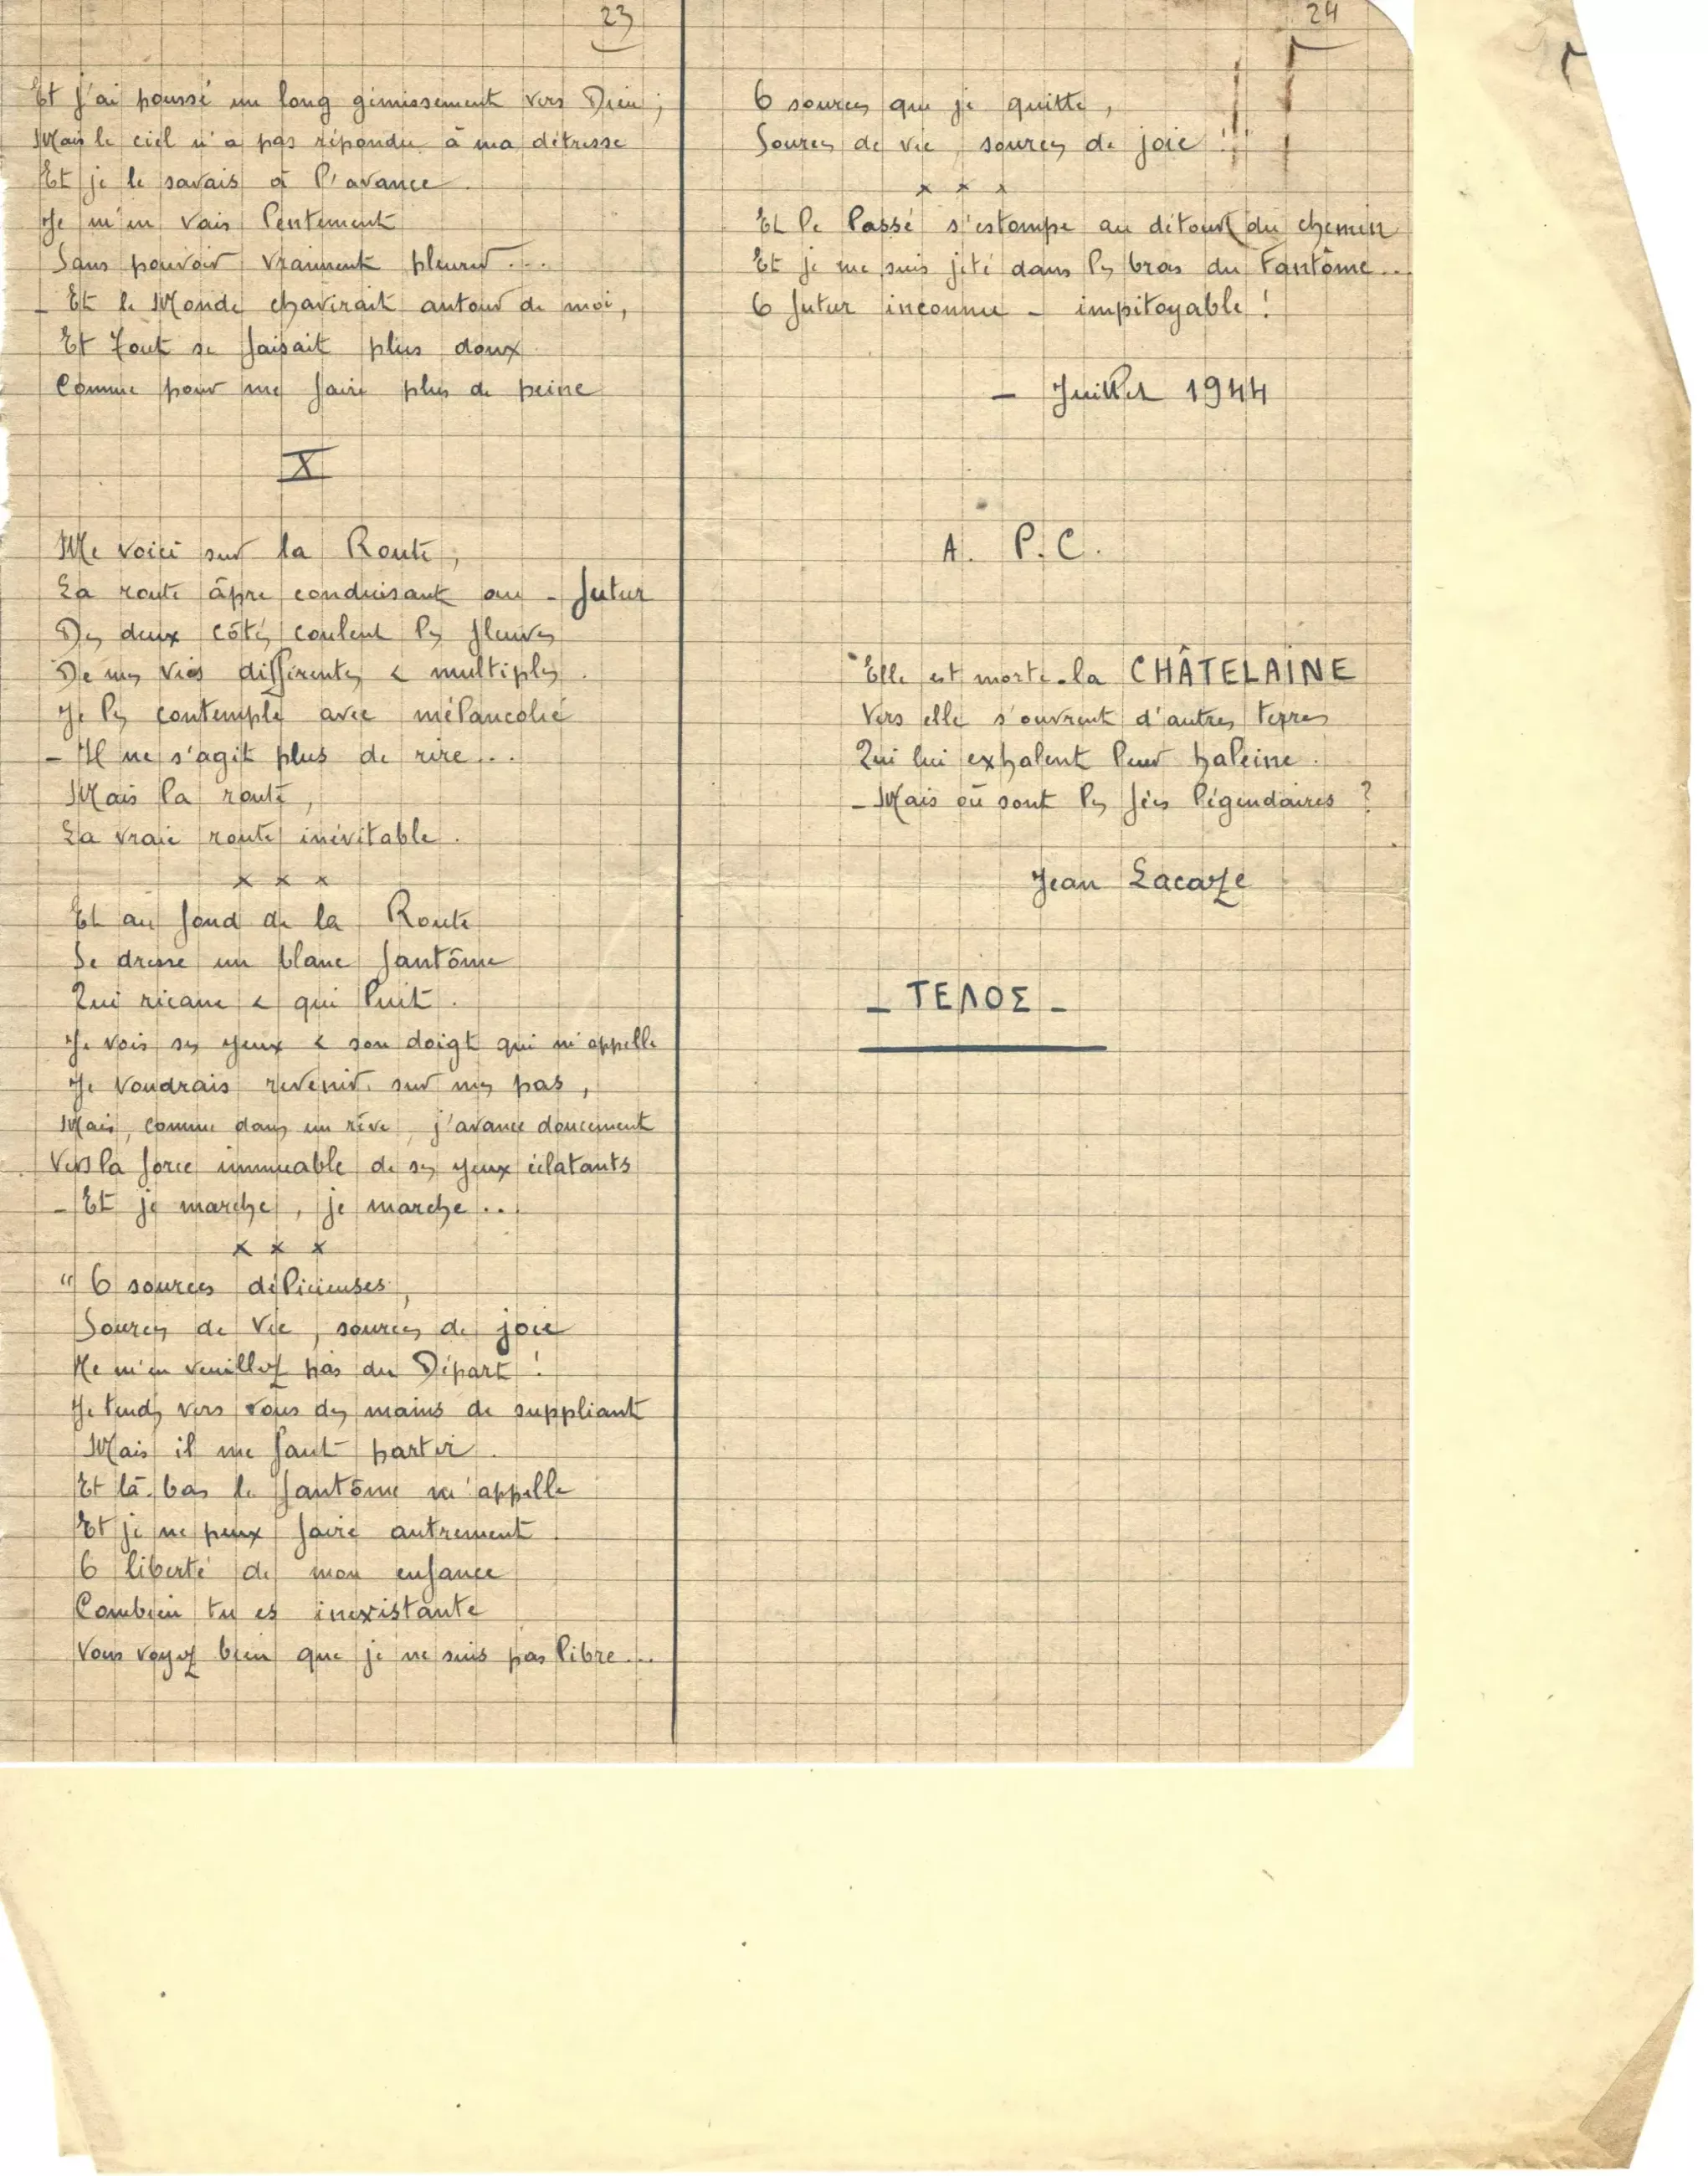 23
Et j'ai poussé un long gémissement vers Dieu ;
Mais le ciel n'a pas répondu à ma détresse
Et je le savais à l'avance.
Je m'en vais lentement
Sans pouvoir vraiment pleurer...
- Et le Monde chavirait autour de moi,
Et Tout se faisait plus doux
Comme pour me faire plus de peine
X
Me voici sur la Route,
La route âpre conduisant au - futur
Des deux côtés coulent les fleuves
De mes vies différentes & multiples.
Je les contemple avec mélancolie
- Il ne s'agit plus de rire...
Mais la route,
La vraie route inévitable.
x x x
Et au fond de la Route
Se dresse un blanc fantôme
Qui ricane & qui luit.
Je vois ses yeux & son doigt qui m'appelle
Je voudrais revenir sur mes pas,
Mais, comme dans un rêve, j'avance doucement
Vers la force immuable de ses yeux éclatants
- Et je marche, je marche...
x x x
" Ô sources délicieuses,
Sources de Vie, sources de joie
Ne m'en veuillez pas du Départ !
Je tends vers vous des mains de suppliant
Mais il me faut partir.
Et là-bas le fantôme m'appelle
Et je ne peux faire autrement
Ô liberté de mon enfance
Combien tu es inexistante
Vous voyez bien que je ne suis pas libre...
24
Ô sources que je quitte,
Sources de vie, sources de joie !
x x x
Et le Passé s'estompe au détour du chemin
Et je me suis jeté dans les bras du Fantôme...
Ô futur inconnu - impitoyable !
- Juillet 1944
A. P.C.
Elle est morte-la CHÂTELAINE
Vers elle s'ouvrent d'autres terres
Qui lui exhalent leur haleine.
- Mais où sont les fées légendaires ?
Jean Lacaze
- ΤΕΛΟΣ -